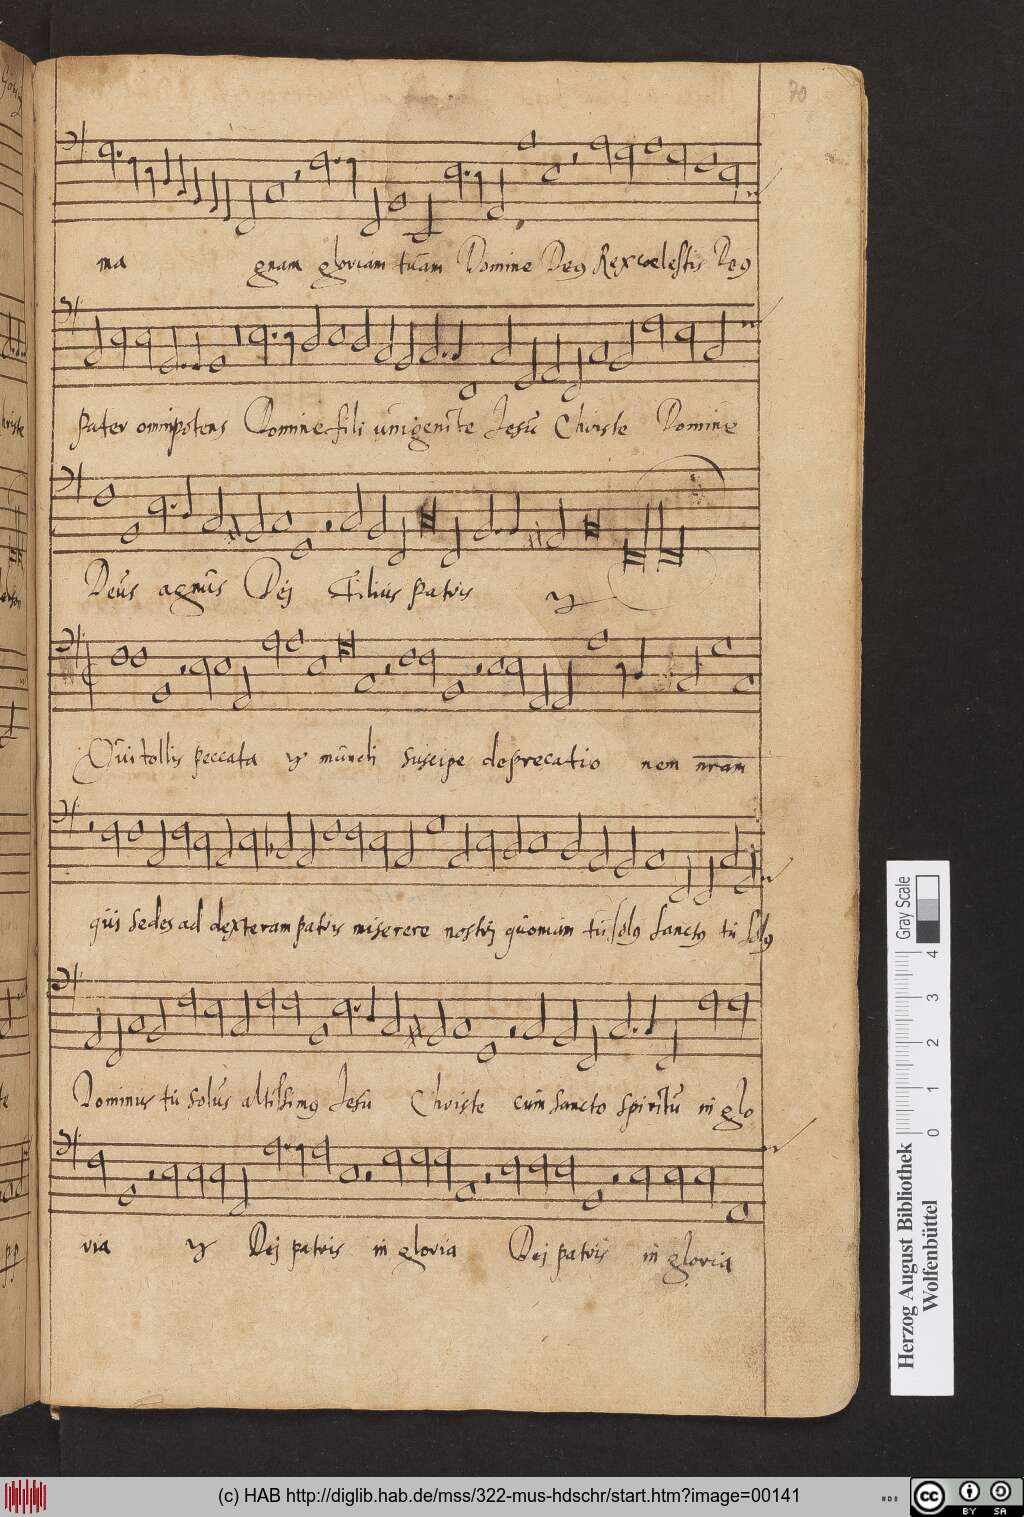 70
ma gnam gloriam tuam Domine Deus Rex coelestis Deus
pater omnipotens Domine fili unigenite Jesu Christe Domine
Deus agnus Dej Filius patris
Qui tollis peccata mundi suscipe deprecatio nem nram
qui sedes ad dexteram patris miserere nostrj quoniam tu solus sanctus tu solus
Dominus tu solus altissimus Jesu Christe cum sancto spiritu in glo
ria Dej patris in gloria Dej patris in gloria
Gray Scale
0 1 2 3 4
Herzog August Bibliothek
Wolfenbüttel
(c) HAB http://diglib.hab.de/mss/322-mus-hdschr/start.htm?image=00141
cc BY SA